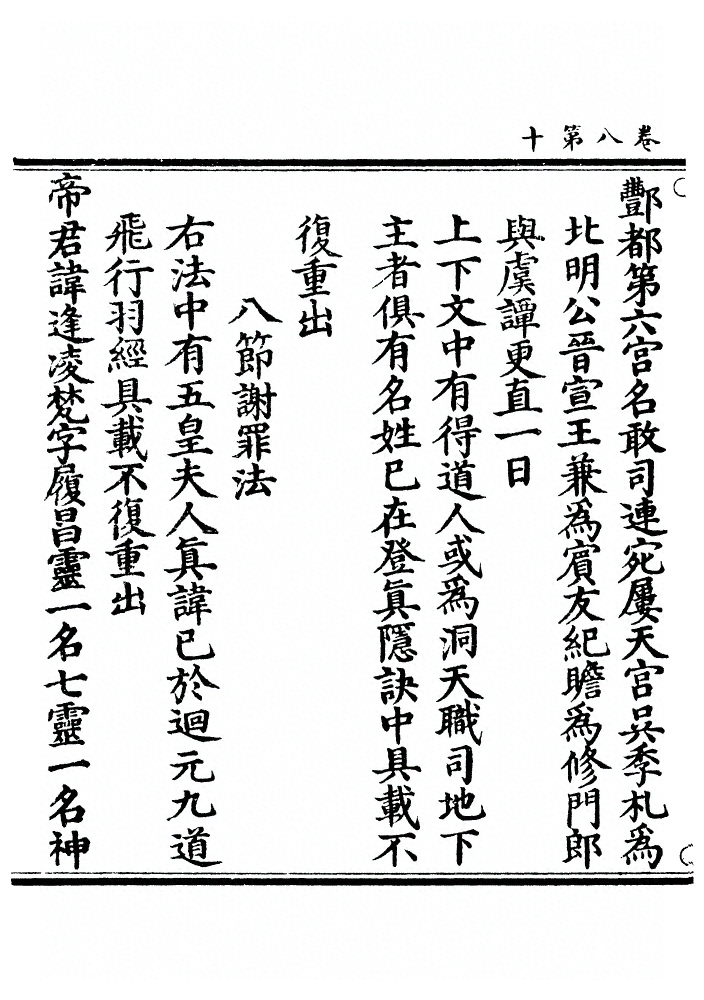 卷八第十
酆都第六宮名敢司連宛屢天宮吳季札爲
北明公晉宣王兼爲賓友紀瞻爲修門郎
與虞譚更直一日
上下文中有得道人或爲洞天職司地下
主者俱有名姓已在登眞隱訣中具載不
復重出
八節謝罪法
右法中有五皇夫人眞諱已於迴元九道
飛行羽經具載不復重出
帝君諱逢凌梵字履昌靈一名七靈一名神